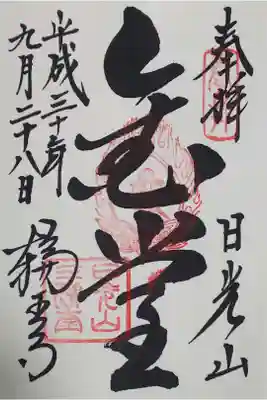 奉拝
日光山
金堂
平成三十年
九月二十八日
輪王寺